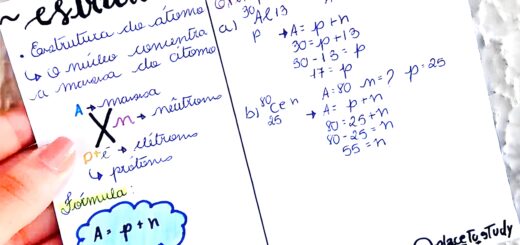 • Estrutura do átomo
↳ O núcleo concentra
a massa do átomo
A → massa
X n → nêutrons
p+ é → elétrons
↳ prótons
Fórmula:
A = p + n
a) 30 Al 13
p → A = p + n
30 = p + 13
30 - 13 = p
17 = p
A = 80 n = ? p = 25
b) 80 Ce n
25 → A = p + n
80 = 25 + n
80 - 25 = n
55 = n
@placeTostudy